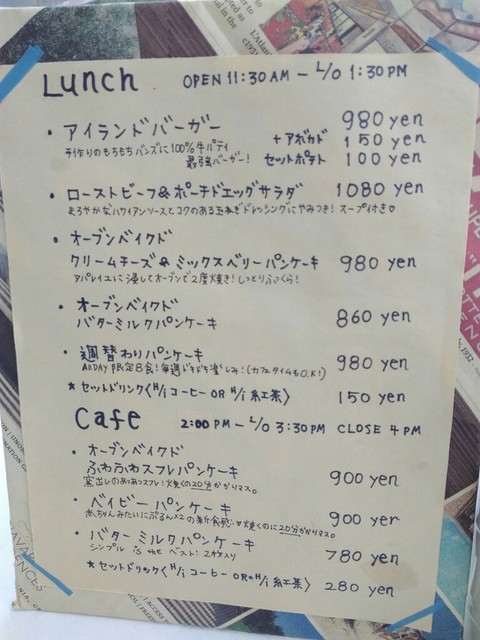 Lunch OPEN 11:30AM — L/O 1:30PM
・アイランドバーガー 980 yen
手作りのもちもちバンズに100%牛パティ + アボカド 150 yen
最強バーガー! セットポテト 100 yen
・ローストビーフ&ポーチドエッグサラダ 1080 yen
まろやかなハワイアンソースとコクのある玉ねぎドレッシングにやみつき! スープ付き♡
・オーブンベイクド
クリームチーズ&ミックスベリーパンケーキ 980 yen
アパレイユに浸してオーブンで2度焼き!しっとりふっくら!
・オーブンベイクド
バターミルクパンケーキ 860 yen
・週替わりパンケーキ 980 yen
AllDAY 限定8食!毎週 (カフェタイムもO.K!)
*セットドリンク〈H/i コーヒー OR H/i 紅茶〉 150 yen
Cafe 2:00PM — L/O 3:30PM CLOSE 4PM
・オーブンベイクド
ふわふわスフレパンケーキ 900 yen
窯出しのあつあつスフレ!焼くの20分かかりマス。
・ベイビーパンケーキ 900 yen
赤ちゃんみたいにぷるん×2の新食感♡焼くのに20分かかりマス。
・バターミルクパンケーキ 780 yen
シンプル is the ベスト! 2枚入り
*セットドリンク〈H/i コーヒー OR H/i 紅茶〉 280 yen